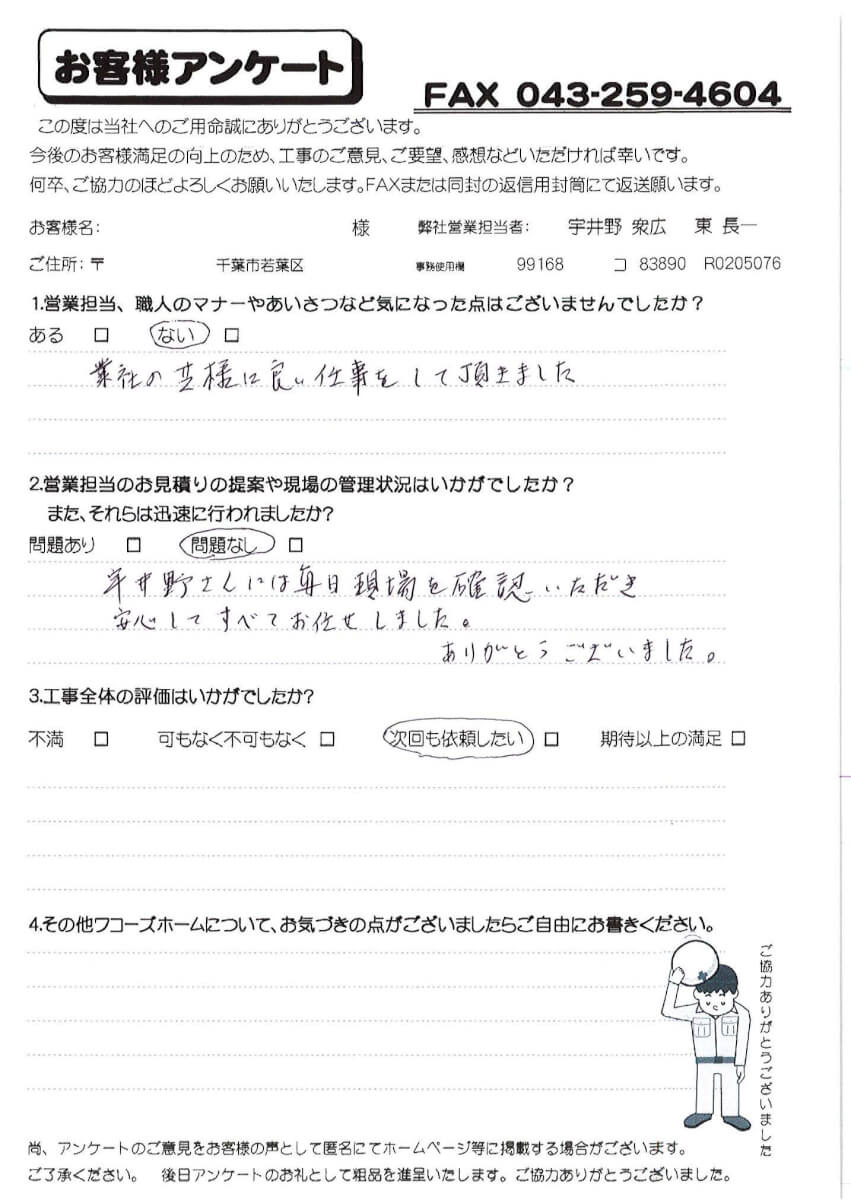 お客様アンケート
FAX 043-259-4604
この度は当社へのご用命誠にありがとうございます。
今後のお客様満足の向上のため、工事のご意見、ご要望、感想などいただければ幸いです。
何卒、ご協力のほどよろしくお願いいたします。FAXまたは同封の返信用封筒にて返送願います。
お客様名: 様 弊社営業担当者: 宇井野 衆広 東 長一
ご住所:〒 千葉市若葉区 事務使用欄 99168 コ 83890 R0205076
1.営業担当、職人のマナーやあいさつなど気になった点はございませんでしたか?
ある □ ない □
業社の皆様に良い仕事をして頂きました
2.営業担当のお見積りの提案や現場の管理状況はいかがでしたか?
また、それらは迅速に行われましたか?
問題あり □ 問題なし □
宇井野さんには毎日現場を確認いただき
安心してすべてお任せしました。
ありがとうございました。
3.工事全体の評価はいかがでしたか?
不満 □ 可もなく不可もなく □ 次回も依頼したい □ 期待以上の満足 □
4.その他ワコーズホームについて、お気づきの点がございましたらご自由にお書きください。
ご協力ありがとうございました
尚、アンケートのご意見をお客様の声として匿名にてホームページ等に掲載する場合がございます。
ご了承ください。 後日アンケートのお礼として粗品を進呈いたします。ご協力ありがとうございました。